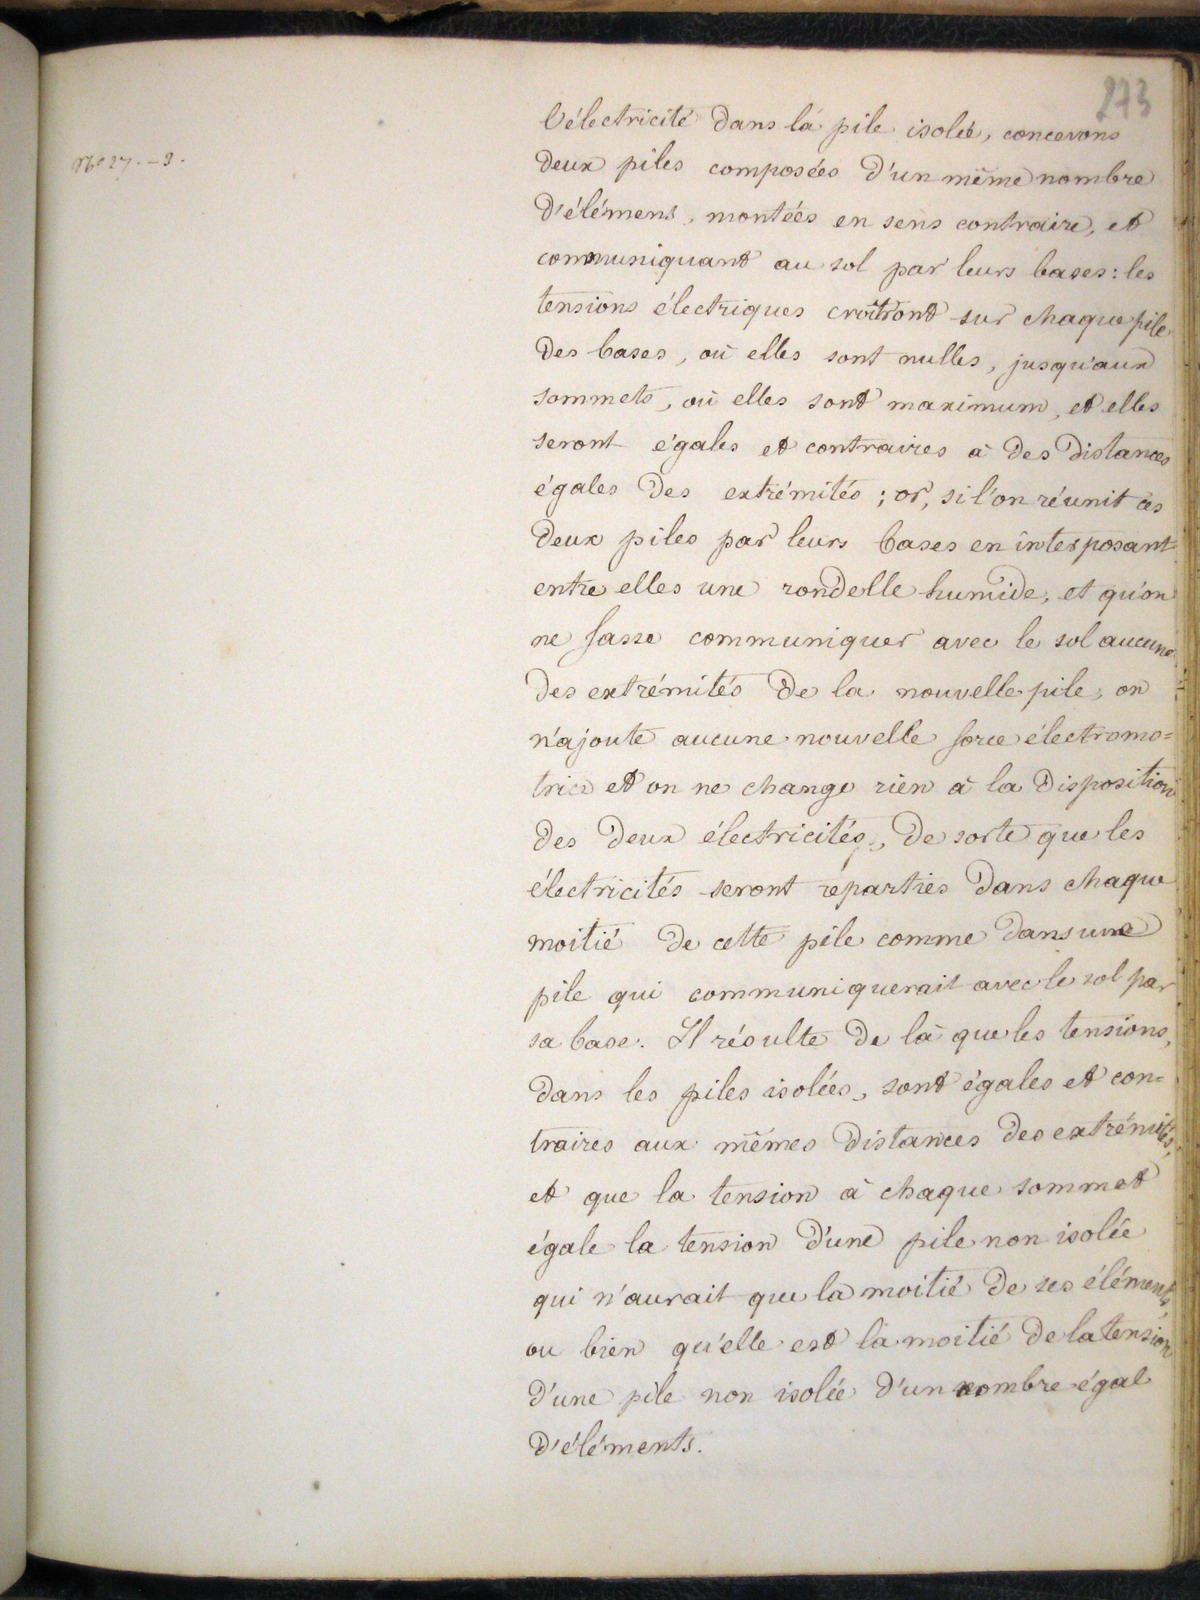 273
l'électricité dans la pile isolée, concevons
N° 27. - 3.
deux piles composées d'un même nombre
d'élémens, montées en sens contraire, et
communiquant au sol par leurs bases: les
tensions électriques croîtront sur chaque pile
des bases, où elles sont nulles, jusqu'aux
sommets, où elles sont maximum, et elles
seront égales et contraires à des distances
égales des extrémités; or, si l'on réunit ces
deux piles par leurs bases en interposant
entre elles une rondelle humide, et qu'on
ne fasse communiquer avec le sol aucune
des extrémités de la nouvelle pile, on
n'ajoute aucune nouvelle force électromo=
trice et on ne change rien à la disposition
des deux électricités, de sorte que les
électricités seront réparties dans chaque
moitié de cette pile comme dans une
pile qui communiquerait avec le sol par
sa base. Il résulte de là que les tensions,
dans les piles isolées, sont égales et con=
traires aux mêmes distances des extrémités,
et que la tension à chaque sommet
égale la tension d'une pile non isolée
qui n'aurait que la moitié de ses éléments,
ou bien qu'elle est la moitié de la tension
d'une pile non isolée d'un nombre égal
d'éléments.